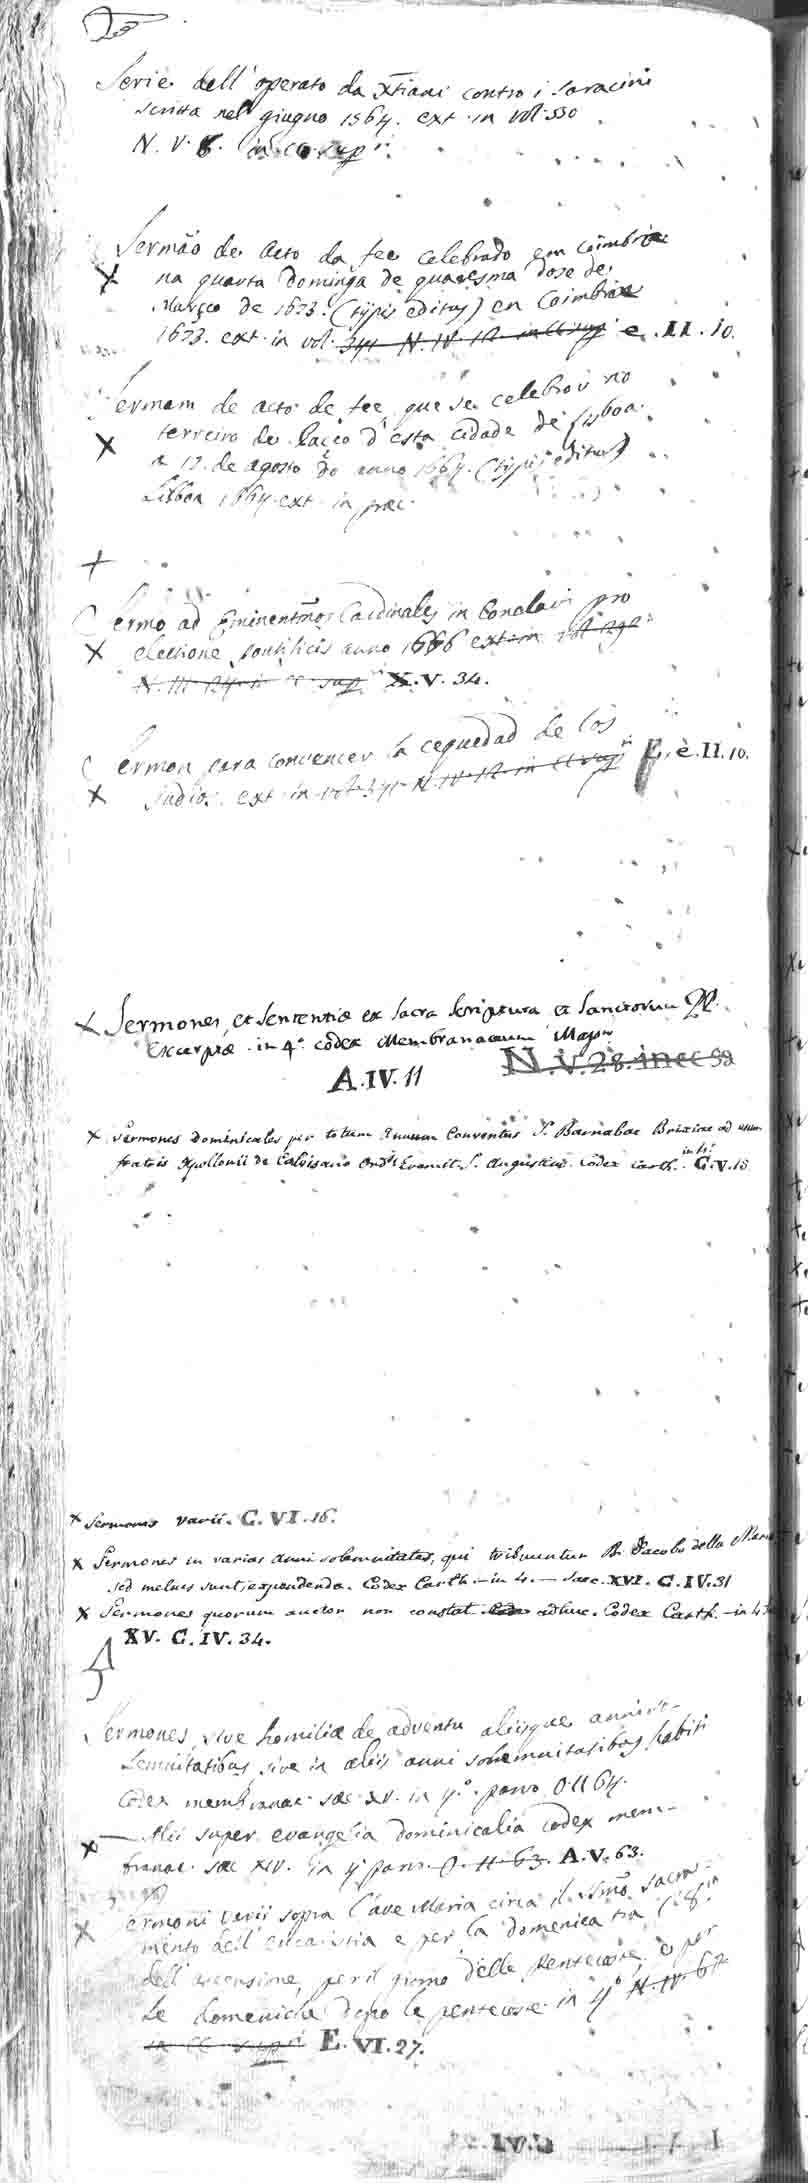 Serie dell'operato da Xtiani contro i saracini
scritta nel giugno 1564. ext. in vol. 550
N. V. 8. in cc. sup.ri
Sermão de Acto da fee celebrado em Coimbra
X na quarta dominga de quaresma doze de
Março de 1673. (typis editus) en Coimbra
1673. ext. in vol. 341 N. IV. 12. in cc sup e. II. 10.
Sermam de acto de fee que se celebrou no
X terreiro de Paço d'esta cidade de Lisboa
a 17. de agosto do anno 1664. (typis editus)
Lisboa 1664. ext. in præc.
+
Sermo ad Eminentmos Cardinales in Conclavi pro
X electione pontificis anno 1666 ext. in vol. 292
N. III. 24. in cc. sup. X. V. 34.
Sermon para convencer la ceguedad de los
X judios. ext. in vol. 341 N. IV. 12. in cc sup E. e. II. 10.
X Sermones, et sententiæ ex sacra scriptura et sanctorum PP.
excerptæ in 4.o codex Membranaceus Major
A. IV. 11 N. V. 28. in cc
X Sermones dominicales per totum Annum Conventus S. Barnabae Brixiae ad usum
fratris Apollonii de Calvisano Ord.s Eremit. S. Augustini. Codex carth. in 4.o G. V. 18
X Sermones varii. C. VI. 16.
X Sermones in varias anni solemnitates, qui tribuuntur B. Jacobo della Marca
sed melius sunt expendenda. Codex Carth. - in 4. - Saec. XVI. C. IV. 31
X Sermones quorum auctor non constat adhuc. Codex Carth. - in 4
XV. C. IV. 34.
Sermones sive homiliæ de adventu aliisque anni so-
lemnitatibus sive in aliis anni solemnitatibus habiti
Codex membranac. sæc. XV. in 4.o parvo O. II 64.
X — Alii super evangelia dominicalia codex mem-
branac. sæc XIV. in 4 parv. O. II. 63. A. V. 63.
X Sermoni varii sopra l'ave Maria circa il SSmo sacra-
mento dell'eucaristia e per la domenica tra l'8.a
dell'ascensione, per il giorno delle Pentecoste, e per
le domeniche dopo le pentecoste in 4.o N. IV. 67
in cc. sup.ri E. VI. 27.